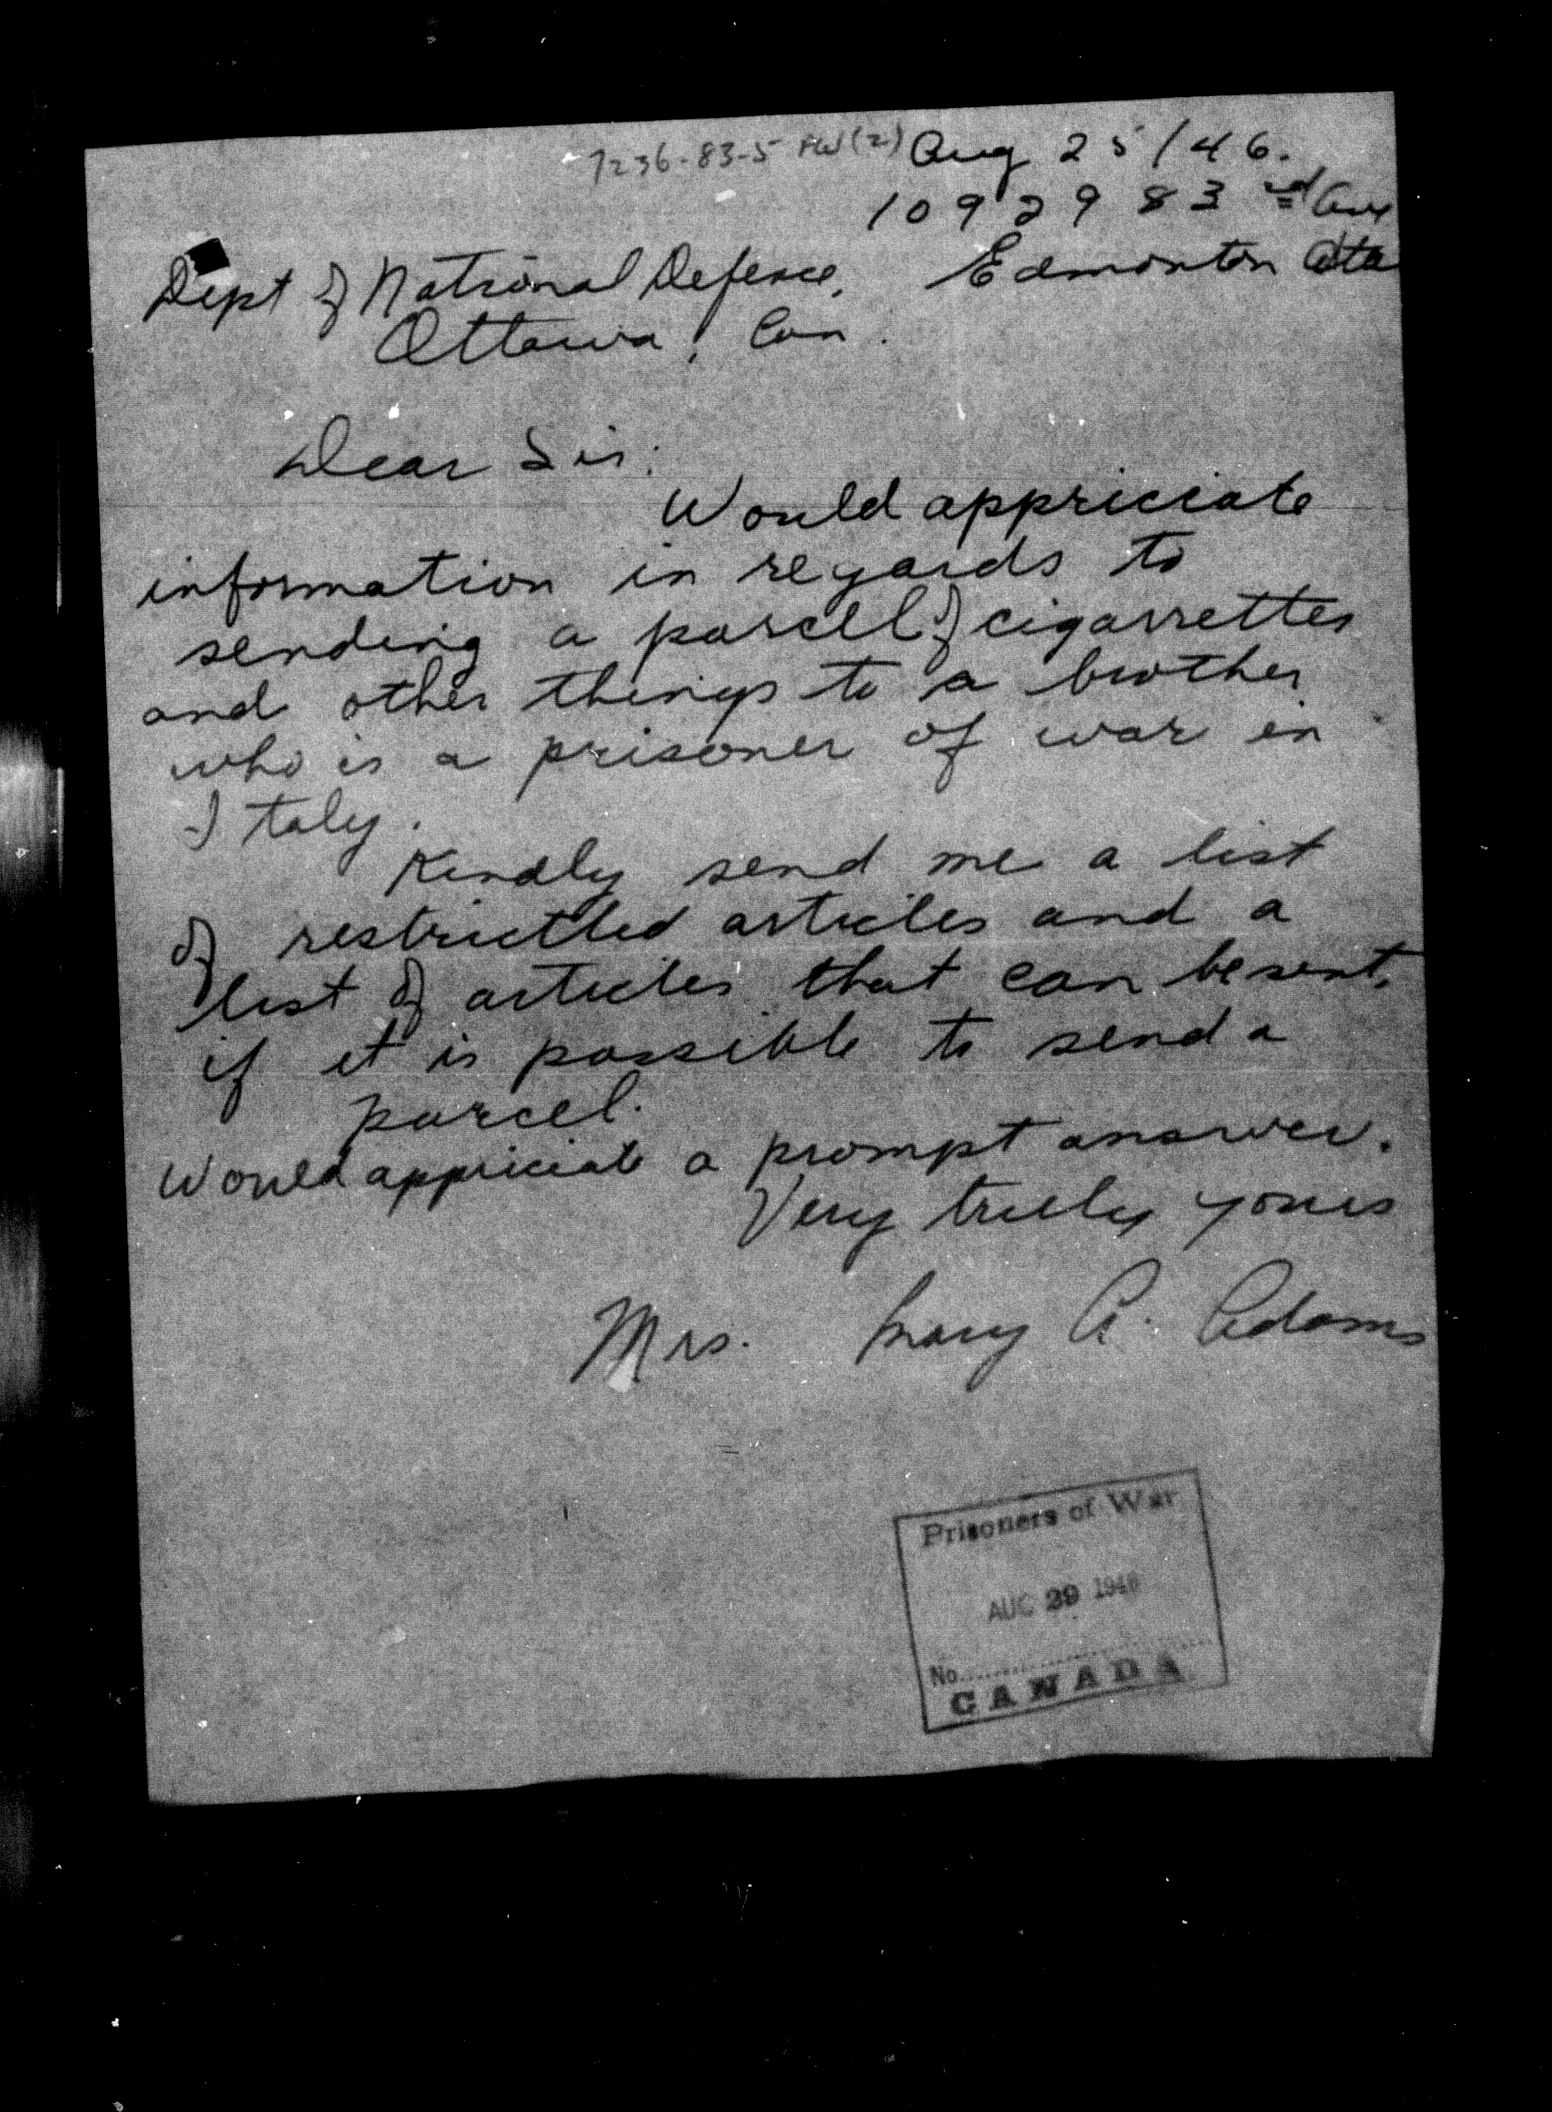 7236-83-5 FW(2)
Aug 25/46.
10929 83rd Ave
Edmonton Alta
Dept of National Defence,
Ottawa, Can.
Dear Sir:
Would appriciate
information in regards to
sending a parcel of cigarrettes
and other things to a brother
who is a prisoner of war in
Italy.
Kindly send me a list
of restrictled articles and a
list of articles that can be sent,
if it is possible to send a
parcel.
Would appriciate a prompt answer.
Very truly yours
Mrs. Mary A. Adams
Prisoners of War
AUG 29 1946
No.
CANADA